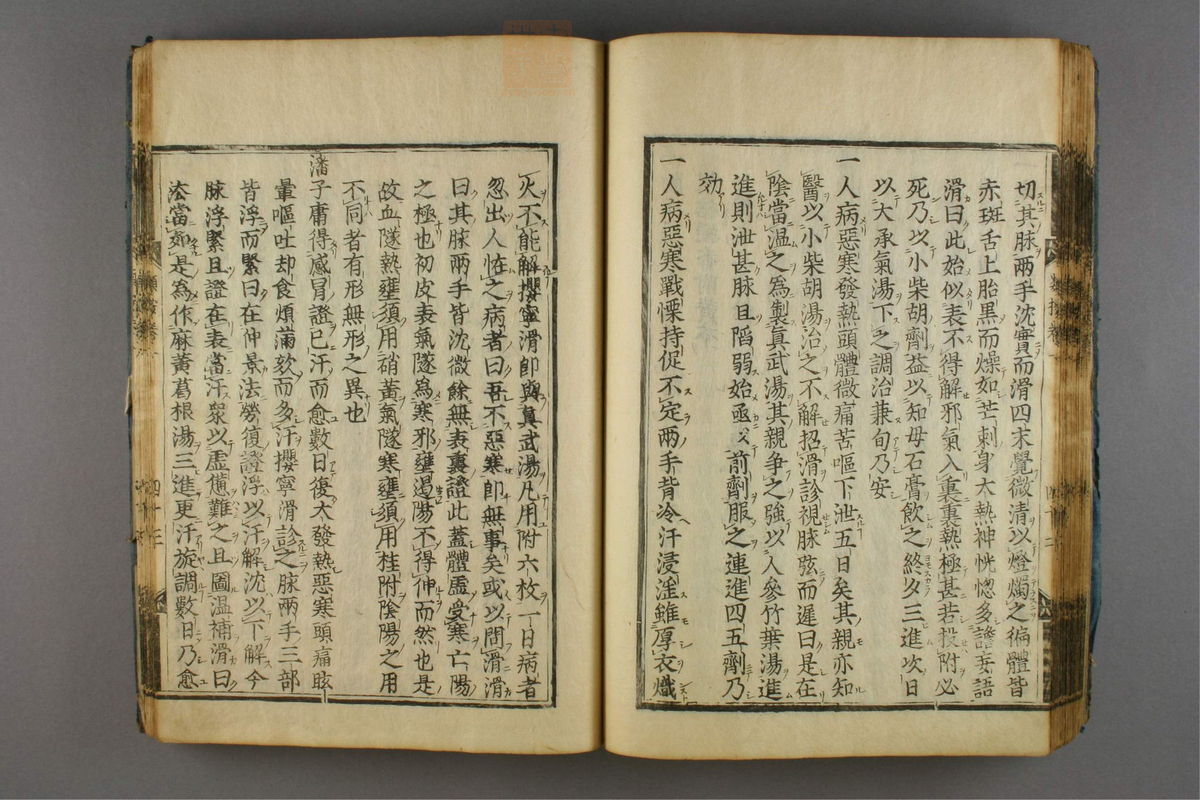 切其脉兩手沈實而滑四末覺微清以燈燭之徧體皆
赤斑舌上胎黑而燥如芒刺身大熱神恍惚多譫妄語
滑曰此始似表不得解邪氣入裏裏熱極甚若投附必
死乃以小柴胡劑益以知母石膏飲之終夕三進次日
以大承氣湯下之調治兼旬乃安
一人病惡寒發熱頭體微痛苦嘔下泄五日矣其親亦知
醫以小柴胡湯治之不解招滑診視脉弦而遲曰是在
陰當温之爲製眞武湯其親争之強以人參竹葉湯進
進則泄甚脉且陷弱始亟以前劑服之連進四五劑乃
効
一人病惡寒戰慄持促不定兩手背冷汗浸淫雖厚衣熾
火不能解攖寧滑即與眞武湯凡用附六枚一日病者
忽出人恠之病者曰吾不惡寒即無事矣或以問滑滑
曰其脉兩手皆沈微餘無表裏證此蓋體虚受寒亡陽
之極也初皮表氣隧爲寒邪壅遏陽不得伸而然也是
故血隧熱壅須用硝黃氣隧寒壅須用桂附陰陽之用
不同者有形無形之異也
潘子庸得感冒證已汗而愈數日復大發熱惡寒頭痛眩
暈嘔吐却食煩滿欬而多汗攖寧滑診之脉兩手三部
皆浮而緊曰在仲景法勞復證浮以汗解沈以下解今
脉浮緊且證在表當汗衆以虚憊難之且圖温補滑曰
法當如是爲作麻黃葛根湯三進更汗旋調數日乃愈